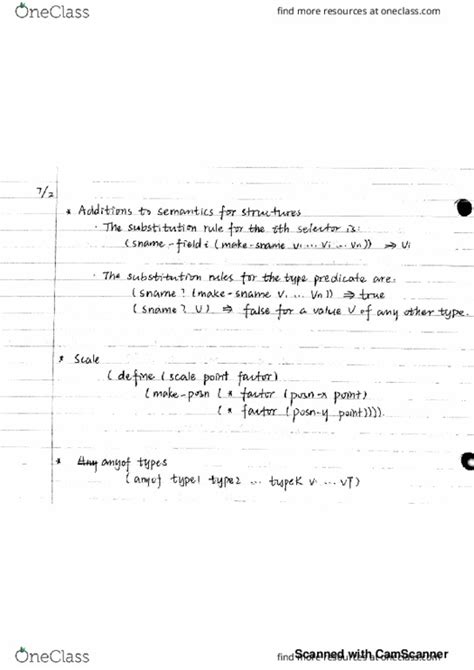 OneClass
find more resources at oneclass.com
7/2
* Additions to semantics for structures
· The substitution rule for the ith selector is:
(sname-field i (make-sname v1 ... vi ... vn)) ⇒ vi
· The substitution rules for the type predicate are:
(sname? (make-sname v1 ... vn)) ⇒ true
(sname? V) ⇒ false for a value V of any other type.
* Scale
(define (scale point factor)
(make-posn (* factor (posn-x point)
(* factor (posn-y point)))).
* anyof types
(anyof type1 type2 ... typeK v1 ... vT)
OneClass
find more resources at oneclass.com
Scanned with CamScanner